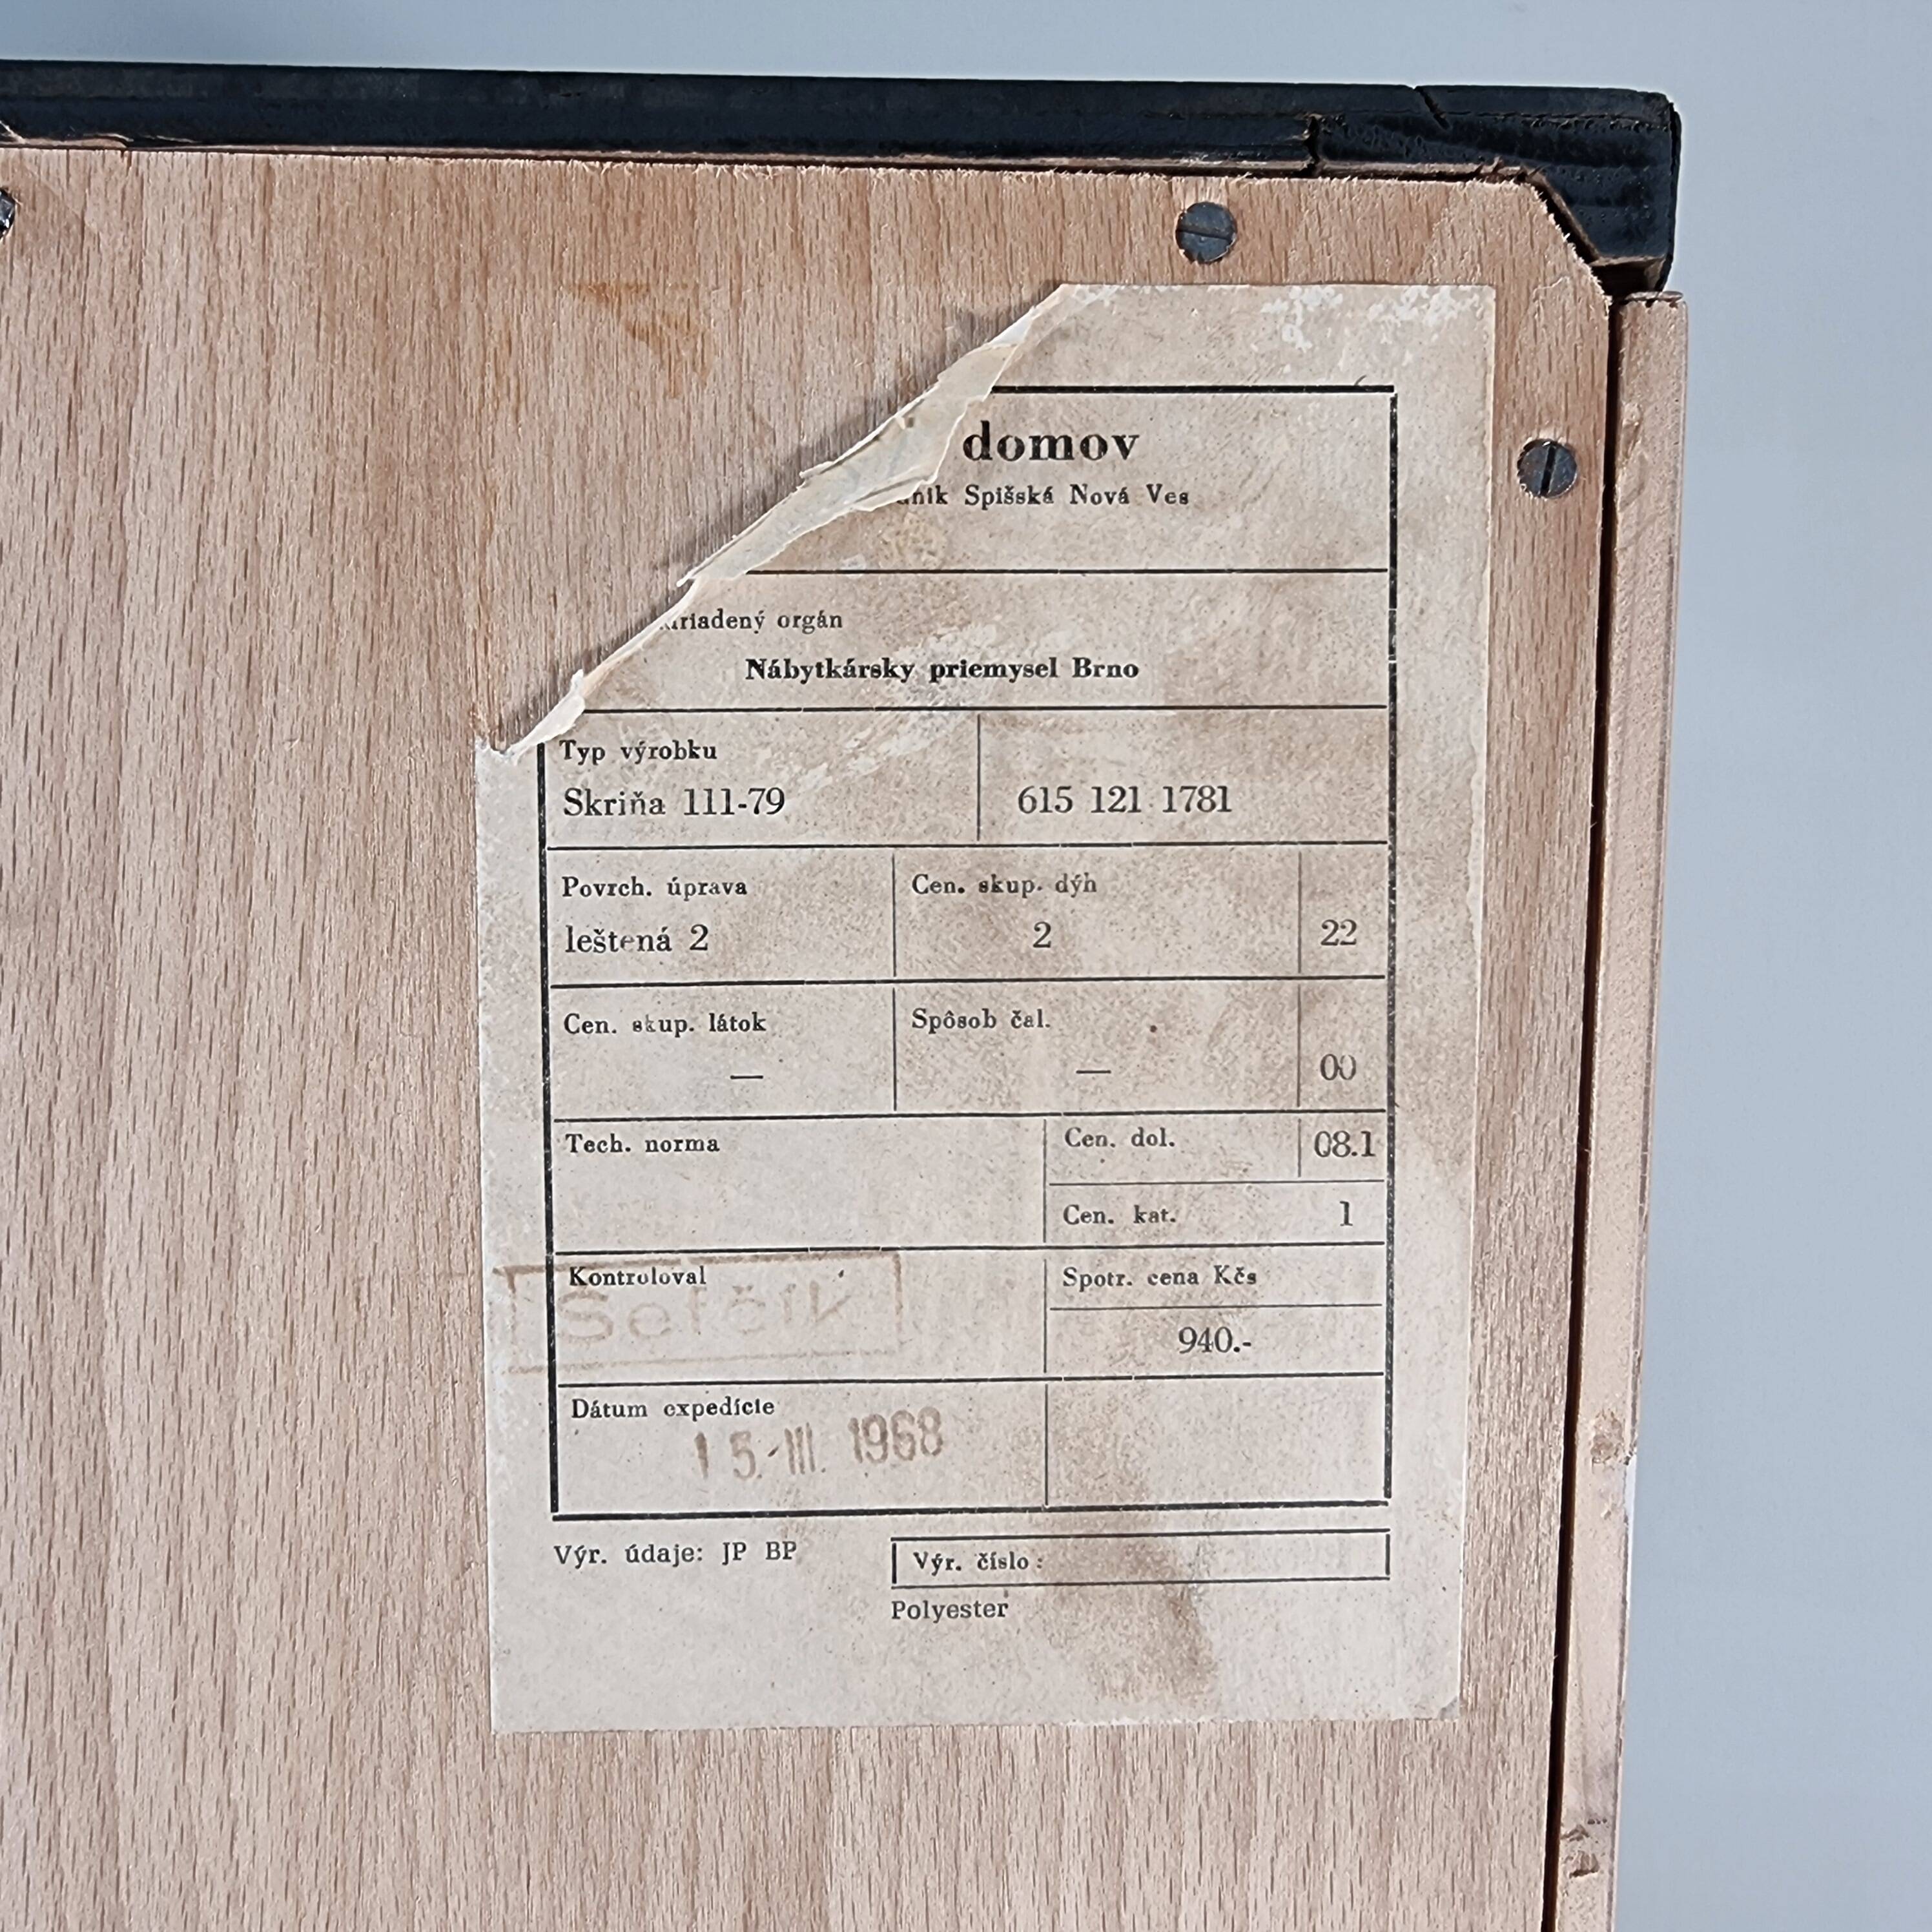 domov
Spišská Nová Ves
orgán
Nábytkársky priemysel Brno
Typ výrobku
Skriňa 111-79
615 121 1781
Povrch. úprava
leštená 2
Cen. skup. dýh
2
22
Cen. skup. látok
—
Spôsob čal.
—
00
Tech. norma
Cen. dol.
08.1
Cen. kat.
1
Kontroloval
Spotr. cena Kčs
940.-
Dátum expedície
15. III. 1968
Výr. údaje: JP BP
Výr. číslo:
Polyester